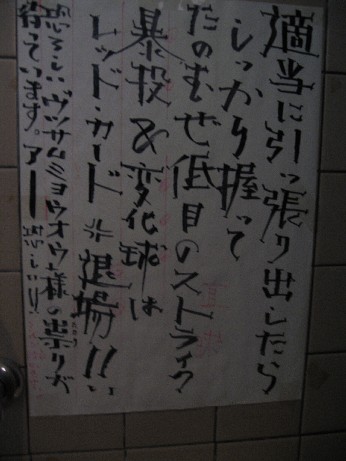 適当に引っ張り出したら
しっかり握って
たのむぜ低目のストライク
暴投&変化球は
レッド・カード※退場!!
恐ろしいヴッサムミョウオウ様の祟りが
待っています。アー恐しい!!